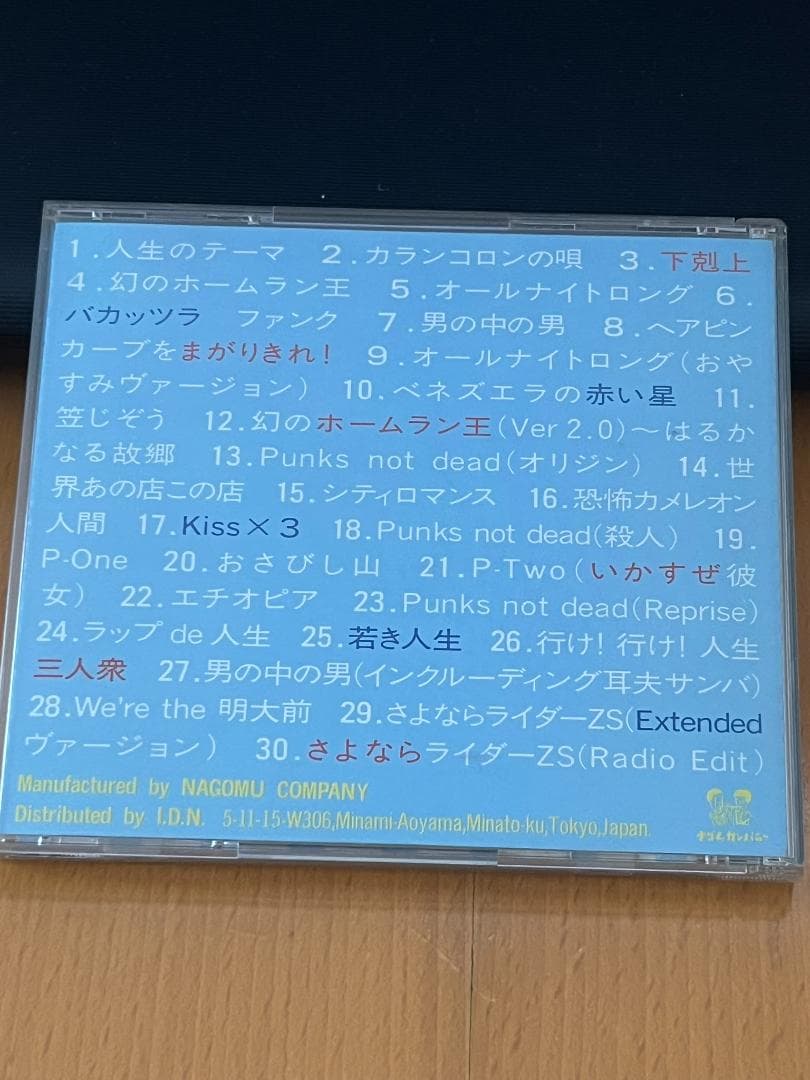 1.人生のテーマ 2.カランコロンの唄 3.下剋上
4.幻のホームラン王 5.オールナイトロング 6.
バカッツラ ファンク 7.男の中の男 8.ヘアピン
カーブをまがりきれ! 9.オールナイトロング(おや
すみヴァージョン) 10.ベネズエラの赤い星 11.
笠じぞう 12.幻のホームラン王(Ver 2.0)〜はるか
なる故郷 13.Punks not dead(オリジン) 14.世
界あの店この店 15.シティロマンス 16.恐怖カメレオン
人間 17.Kiss×3 18.Punks not dead(殺人) 19.
P-One 20.おさびし山 21.P-Two(いかすぜ彼
女) 22.エチオピア 23.Punks not dead(Reprise)
24.ラップ de 人生 25.若き人生 26.行け! 行け! 人生
三人衆 27.男の中の男(インクルーディング耳夫サンバ)
28.We're the 明大前 29.さよならライダーZS(Extended
ヴァージョン) 30.さよならライダーZS(Radio Edit)
Manufactured by NAGOMU COMPANY
Distributed by I.D.N. 5-11-15-W306,Minami-Aoyama,Minato-ku,Tokyo,Japan.
ナゴムカンパニー